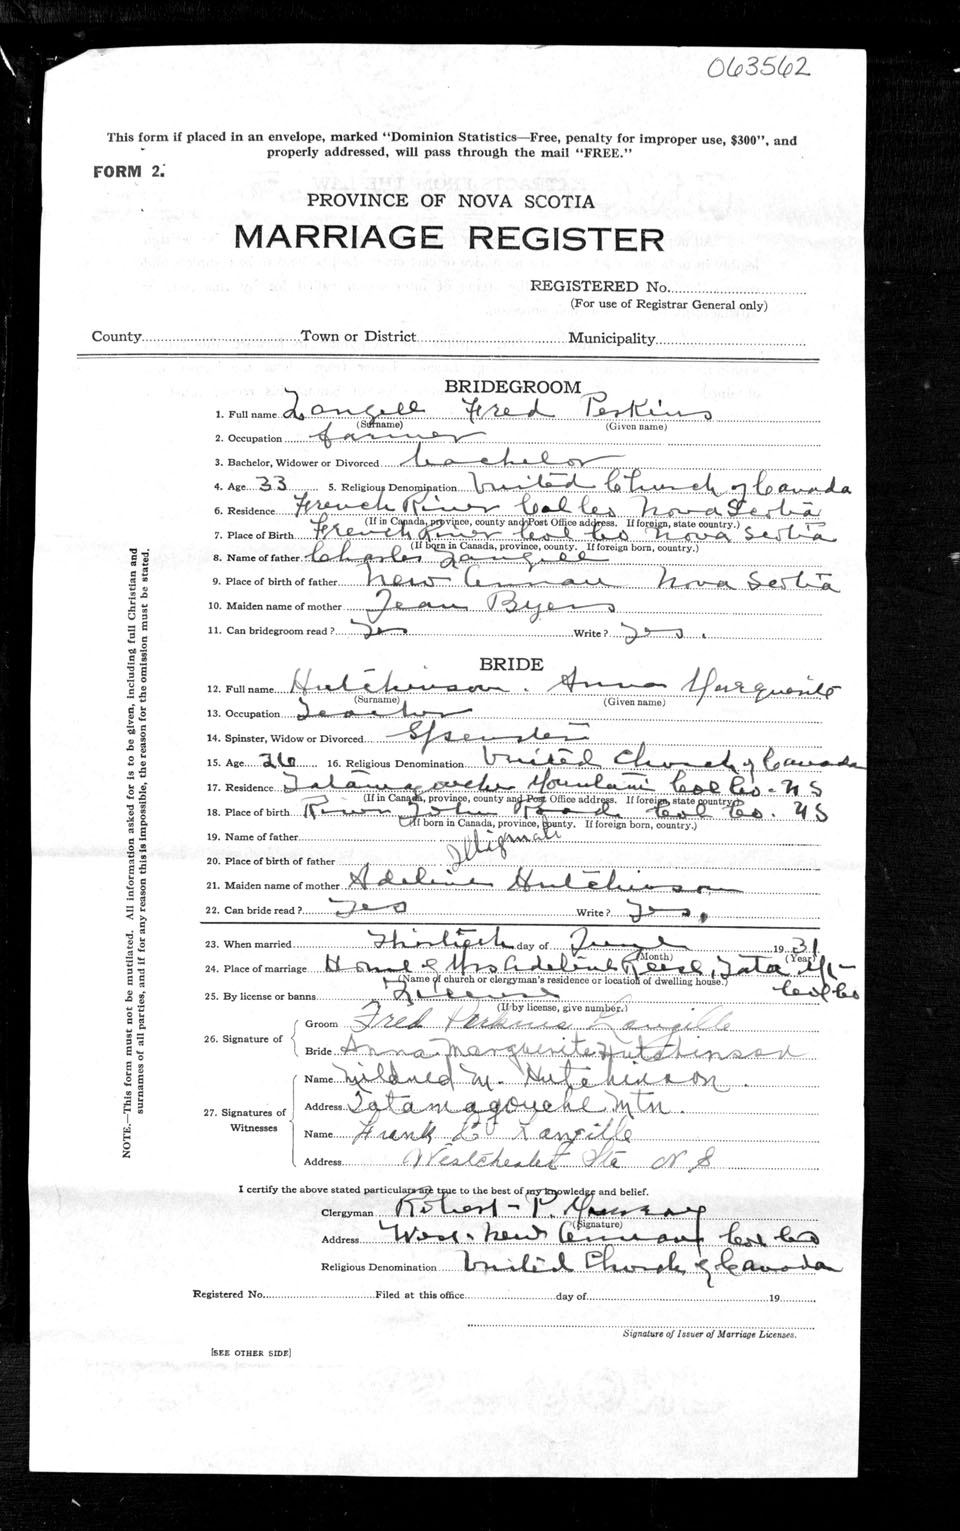 063562
This form if placed in an envelope, marked "Dominion Statistics—Free, penalty for improper use, $300", and
properly addressed, will pass through the mail "FREE."
FORM 2.
PROVINCE OF NOVA SCOTIA
MARRIAGE REGISTER
REGISTERED No.
(For use of Registrar General only)
County Town or District Municipality
BRIDEGROOM
1. Full name Langille Fred Perkins
(Surname) (Given name)
2. Occupation farmer
3. Bachelor, Widower or Divorced bachelor
4. Age 33 5. Religious Denomination United Church of Canada
6. Residence French River Col Co Nova Scotia
(If in Canada, province, county and Post Office address. If foreign, state country.)
7. Place of Birth French River Col Co Nova Scotia
(If born in Canada, province, county. If foreign born, country.)
8. Name of father Charles Langille
9. Place of birth of father New Annan Nova Scotia
10. Maiden name of mother Jean Byers
11. Can bridegroom read? Yes Write? Yes.
BRIDE
12. Full name Hutchinson. Anna Marguerite
(Surname) (Given name)
13. Occupation Teacher
14. Spinster, Widow or Divorced Spinster
15. Age 26 16. Religious Denomination United Church of Canada
17. Residence Tatamagouche Mountain Col Co. N S
(If in Canada, province, county and Post Office address. If foreign, state country.)
18. Place of birth River John Road Col Co. N S
(If born in Canada, province, county. If foreign born, country.)
19. Name of father
20. Place of birth of father
21. Maiden name of mother Adeline Hutchinson
22. Can bride read? Yes Write? Yes.
23. When married Thirtieth day of June 1931
(Month) (Year)
24. Place of marriage Home of Mrs Adeline Reese, Tata Mt-
(Name of church or clergyman's residence or location of dwelling house.)
Col Co
25. By license or banns License
(If by license, give number.)
26. Signature of
Groom Fred Perkins Langille
Bride Anna Marguerite Hutchinson
27. Signatures of Witnesses
Name Mildred M. Hutchinson.
Address Tatamagouche Mtn.
Name Frank Langille
Address Westchester Sta N S
I certify the above stated particulars are true to the best of my knowledge and belief.
Clergyman Robert P.
(Signature)
Address West New Annan Col Co
Religious Denomination United Church of Canada
Registered No. Filed at this office day of 19
Signature of Issuer of Marriage Licenses.
[SEE OTHER SIDE]
NOTE.—This form must not be mutilated. All information asked for is to be given, including full Christian and
surnames of all parties, and if for any reason this is impossible, the reason for the omission must be stated.